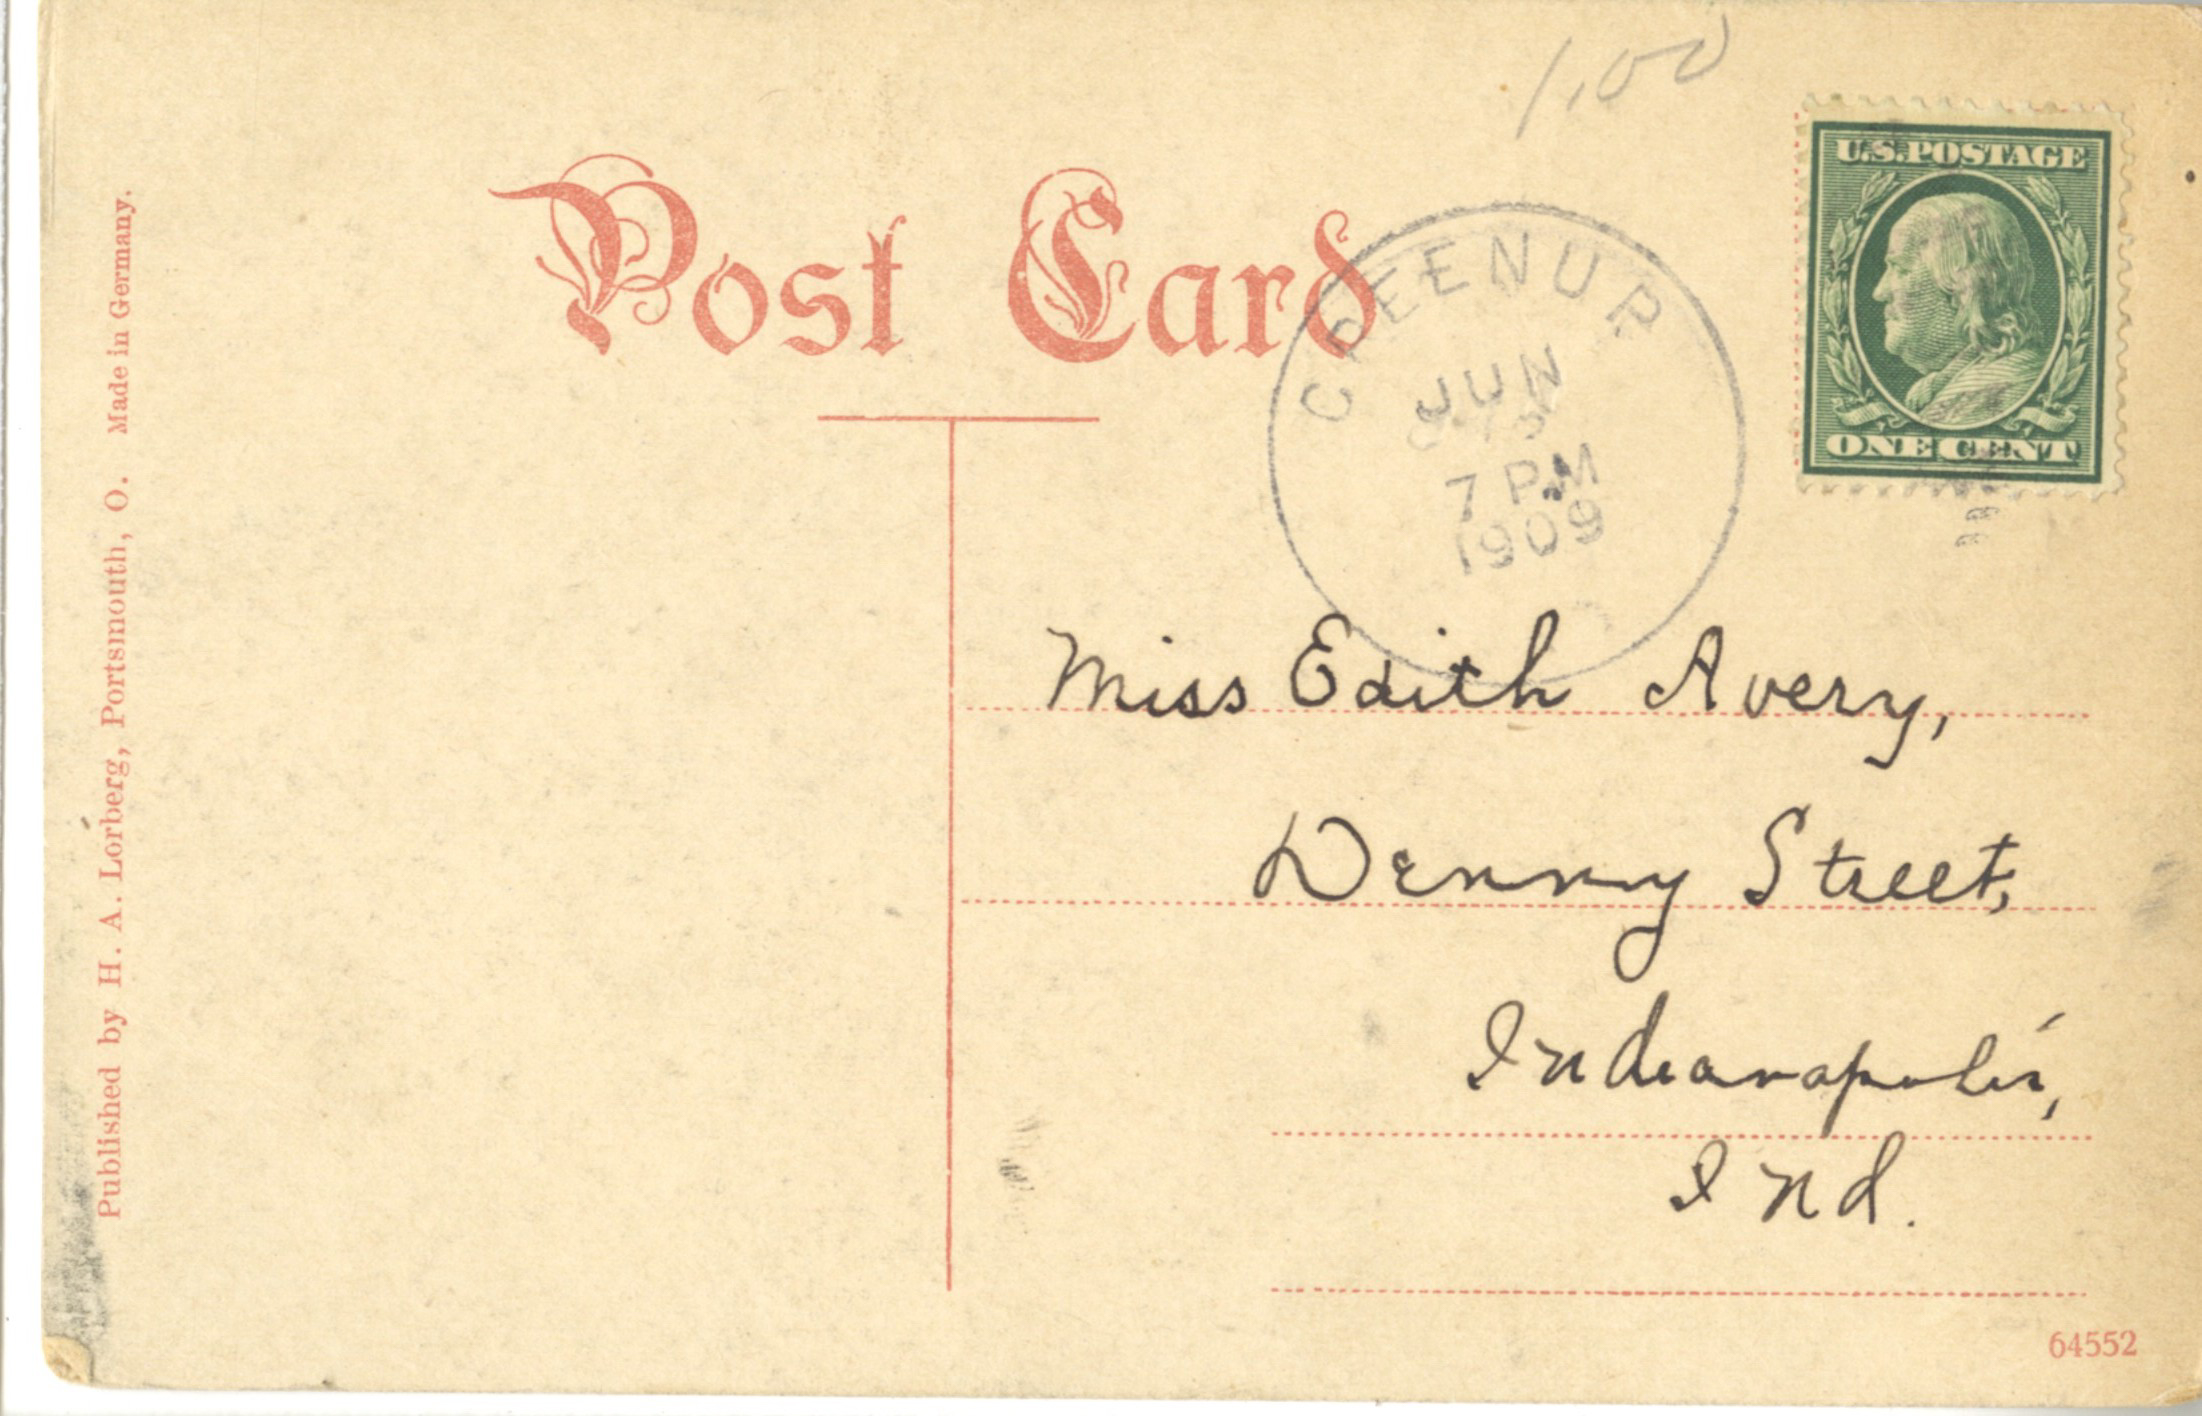 1.00
U.S. POSTAGE
Post Card
GREENUP
JUN
7 PM
1909
ONE CENT
Miss Edith Avery,
Denny Street,
Indianapolis,
Ind.
64552
Published by H. A. Lorberg, Portsmouth, O. Made in Germany.